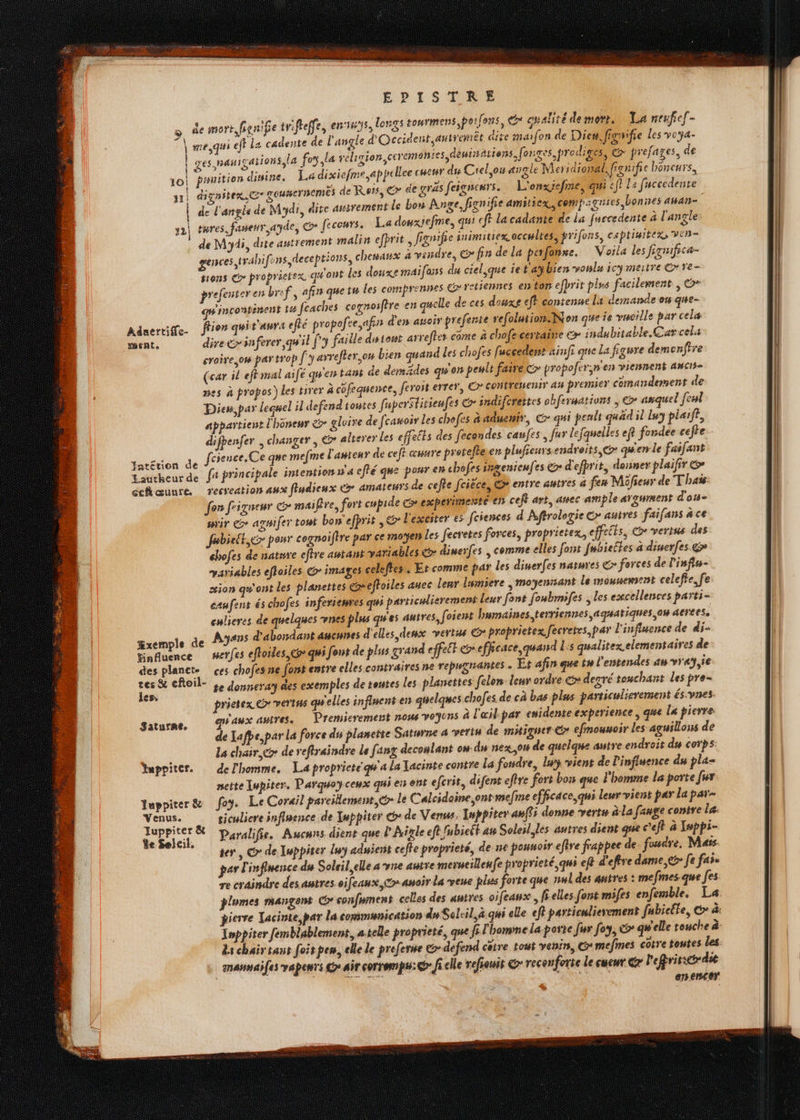 EPISTRE
9 de mort, signifie tristesse, ennuys, longs tourmens, poisons, & qualité de mort. La neufies-
me, qui est la cadente de l'angle d'Occident, autremēt dite maison de Dieu, signifie les voya-
ges, nauigations, la foy, la religion, ceremonies, deuinations, songes, prodiges, & presages, de
10 punition diuine. La dixiesme, appellee cueur du Ciel, ou angle Meridional, signifie hōneurs,
11 dignitez, & gouuernemēs de Rois, & de grās seigneurs. L'onziesme, qui est la succedente
de l'angle de Mydi, dite autrement le bon Ange, signifie amitiez, compagnies, bonnes auan-
12 tures, faueur, ayde, & secours. La douziesme, qui est la cadante de la succedente à l'angle
de Mydi, dite autrement malin esprit, signifie inimitiez occultes, prisons, captiuitez, ven-
gences, trahisons, deceptions, cheuaux à vendre, & fin de la personne. Voila les significa-
tions & proprietez, qu'ont les douze maisons du ciel, que ie t'ay bien voulu icy mettre & re-
presenter en bref, afin que tu les comprennes & retiennes en ton esprit plus facilement, &
qu'incontinent tu scaches cognoistre en quelle de ces douze est contenue la demande ou que-
Aduertisse- stion qui t'aura esté proposee, afin d'en auoir presente resolution. Non que ie vueille par cela
ment. dire & inferer, qu'il s'y faille du tout arrester cōme à chose certaine & indubitable. Car cela
croire, ou par trop s'y arrester, ou bien quand les choses succedent ainsi que la figure demonstre
(car il est mal aisé qu'en tant de demādes qu'on peult faire & proposer, n'en viennent aucu-
nes à propos) les tirer à cōsequence, seroit errer, & contreuenir au premier cōmandement de
Dieu, par lequel il defend toutes superstitieuses & indiscrettes obseruations, & auquel seul
appartient l'honeur & gloire de scauoir les choses à aduenir, & qui peult quād il luy plaist,
dispenser, changer, & alterer les effects des secondes causes, sur lesquelles est fondee ceste
Intētion de science. Ce que mesme l'auteur de cest œuure proteste en plusieurs endroits, & qu'en le faisant
Lautheur de sa principale intention n'a esté que pour en choses ingenieuses & d'esprit, donner plaisir &
cest œuure. recreation aux studieux & amateurs de ceste sciēce, & entre autres a feu Mōsieur de Thais
son seigneur & maistre, fort cupide & experimenté en cest art, auec ample argument d'ou-
urir & aguiser tout bon esprit, & l'exciter es sciences d'Astrologie & autres faisans à ce
subiect, & pour cognoistre par ce moyen les secretes forces, proprietez, effects, & vertus des
choses de nature estre autant variables & diuerses, comme elles sont subiectes à diuerses &
variables estoiles & images celestes. Et comme par les diuerses natures & forces de l'influ-
xion qu'ont les planettes & estoiles auec leur lumiere, moyennant le mouuement celeste, se
causent és choses inferieures qui particulierement leur sont soubmises, les excellences parti-
culieres de quelques vnes plus qu'es autres, soient humaines, terriennes, aquatiques, ou aerees.
Exemple de Ayans d'abondant aucunes d'elles, deux vertus & proprietez secretes, par l'influence de di-
l'influence uerses estoiles, & qui sont de plus grand effect & efficace, quand les qualitez elementaires de
des planet- ces choses ne sont entre elles contraires ne repugnantes. Et afin que tu l'entendes au vray, ie
tes & estoil- te donneray des exemples de toutes les planettes selon leur ordre & degré touchant les pro-
les. prietez & vertus qu'elles influent en quelques choses de cà bas plus particulierement és vnes
qu'aux autres. Premierement nous voyons à l'œil par euidente experience, que la pierre
Saturne. de Iaspe, par la force du planette Saturne a vertu de mitiguer & esmouuoir les aguillons de
la chair, & de restraindre le sang decoulant ou du nez, ou de quelque autre endroit du corps
Iuppiter. de l'homme. La proprieté qu'a la Iacinte contre la foudre, luy vient de l'influence du pla-
nette Iupiter. Parquoy ceux qui en ont escrit, disent estre fort bon que l'homme la porte sur
Iuppiter & soy. Le Corail pareillement, & le Calcidoine, ont mesme efficace, qui leur vient par la par-
Venus. ticuliere influence de Iuppiter & de Venus. Iuppiter aussi donne vertu à la sauge contre la
Iuppiter & Paralisie. Aucuns dient que l'Aigle est subiect au Soleil, les autres dient que c'est à Iuppi-
le Soleil. ter, & de Iuppiter luy aduient ceste proprieté, de ne pouuoir estre frappee de foudre. Mais
par l'influence du Soleil, elle a vne autre merueilleuse proprieté, qui est d'estre dame, & se fai-
re craindre des autres oiseaux, & auoir la veue plus forte que nul des autres: mesmes que ses
plumes mangent & consument celles des autres oiseaux, si elles sont mises ensemble. La
pierre Iacinte, par la communication du Soleil, à qui elle est particulierement subiecte, & à
Iuppiter semblablement, a telle proprieté, que si l'homme la porte sur soy, & qu'elle touche à
la chair tant soit peu, elle le preserue & defend cōtre tout venin, & mesmes cōtre toutes les
mauuaises vapeurs & air corrompu: & si elle resiouit & reconforte le cueur & l'esprit: & dit
on encor